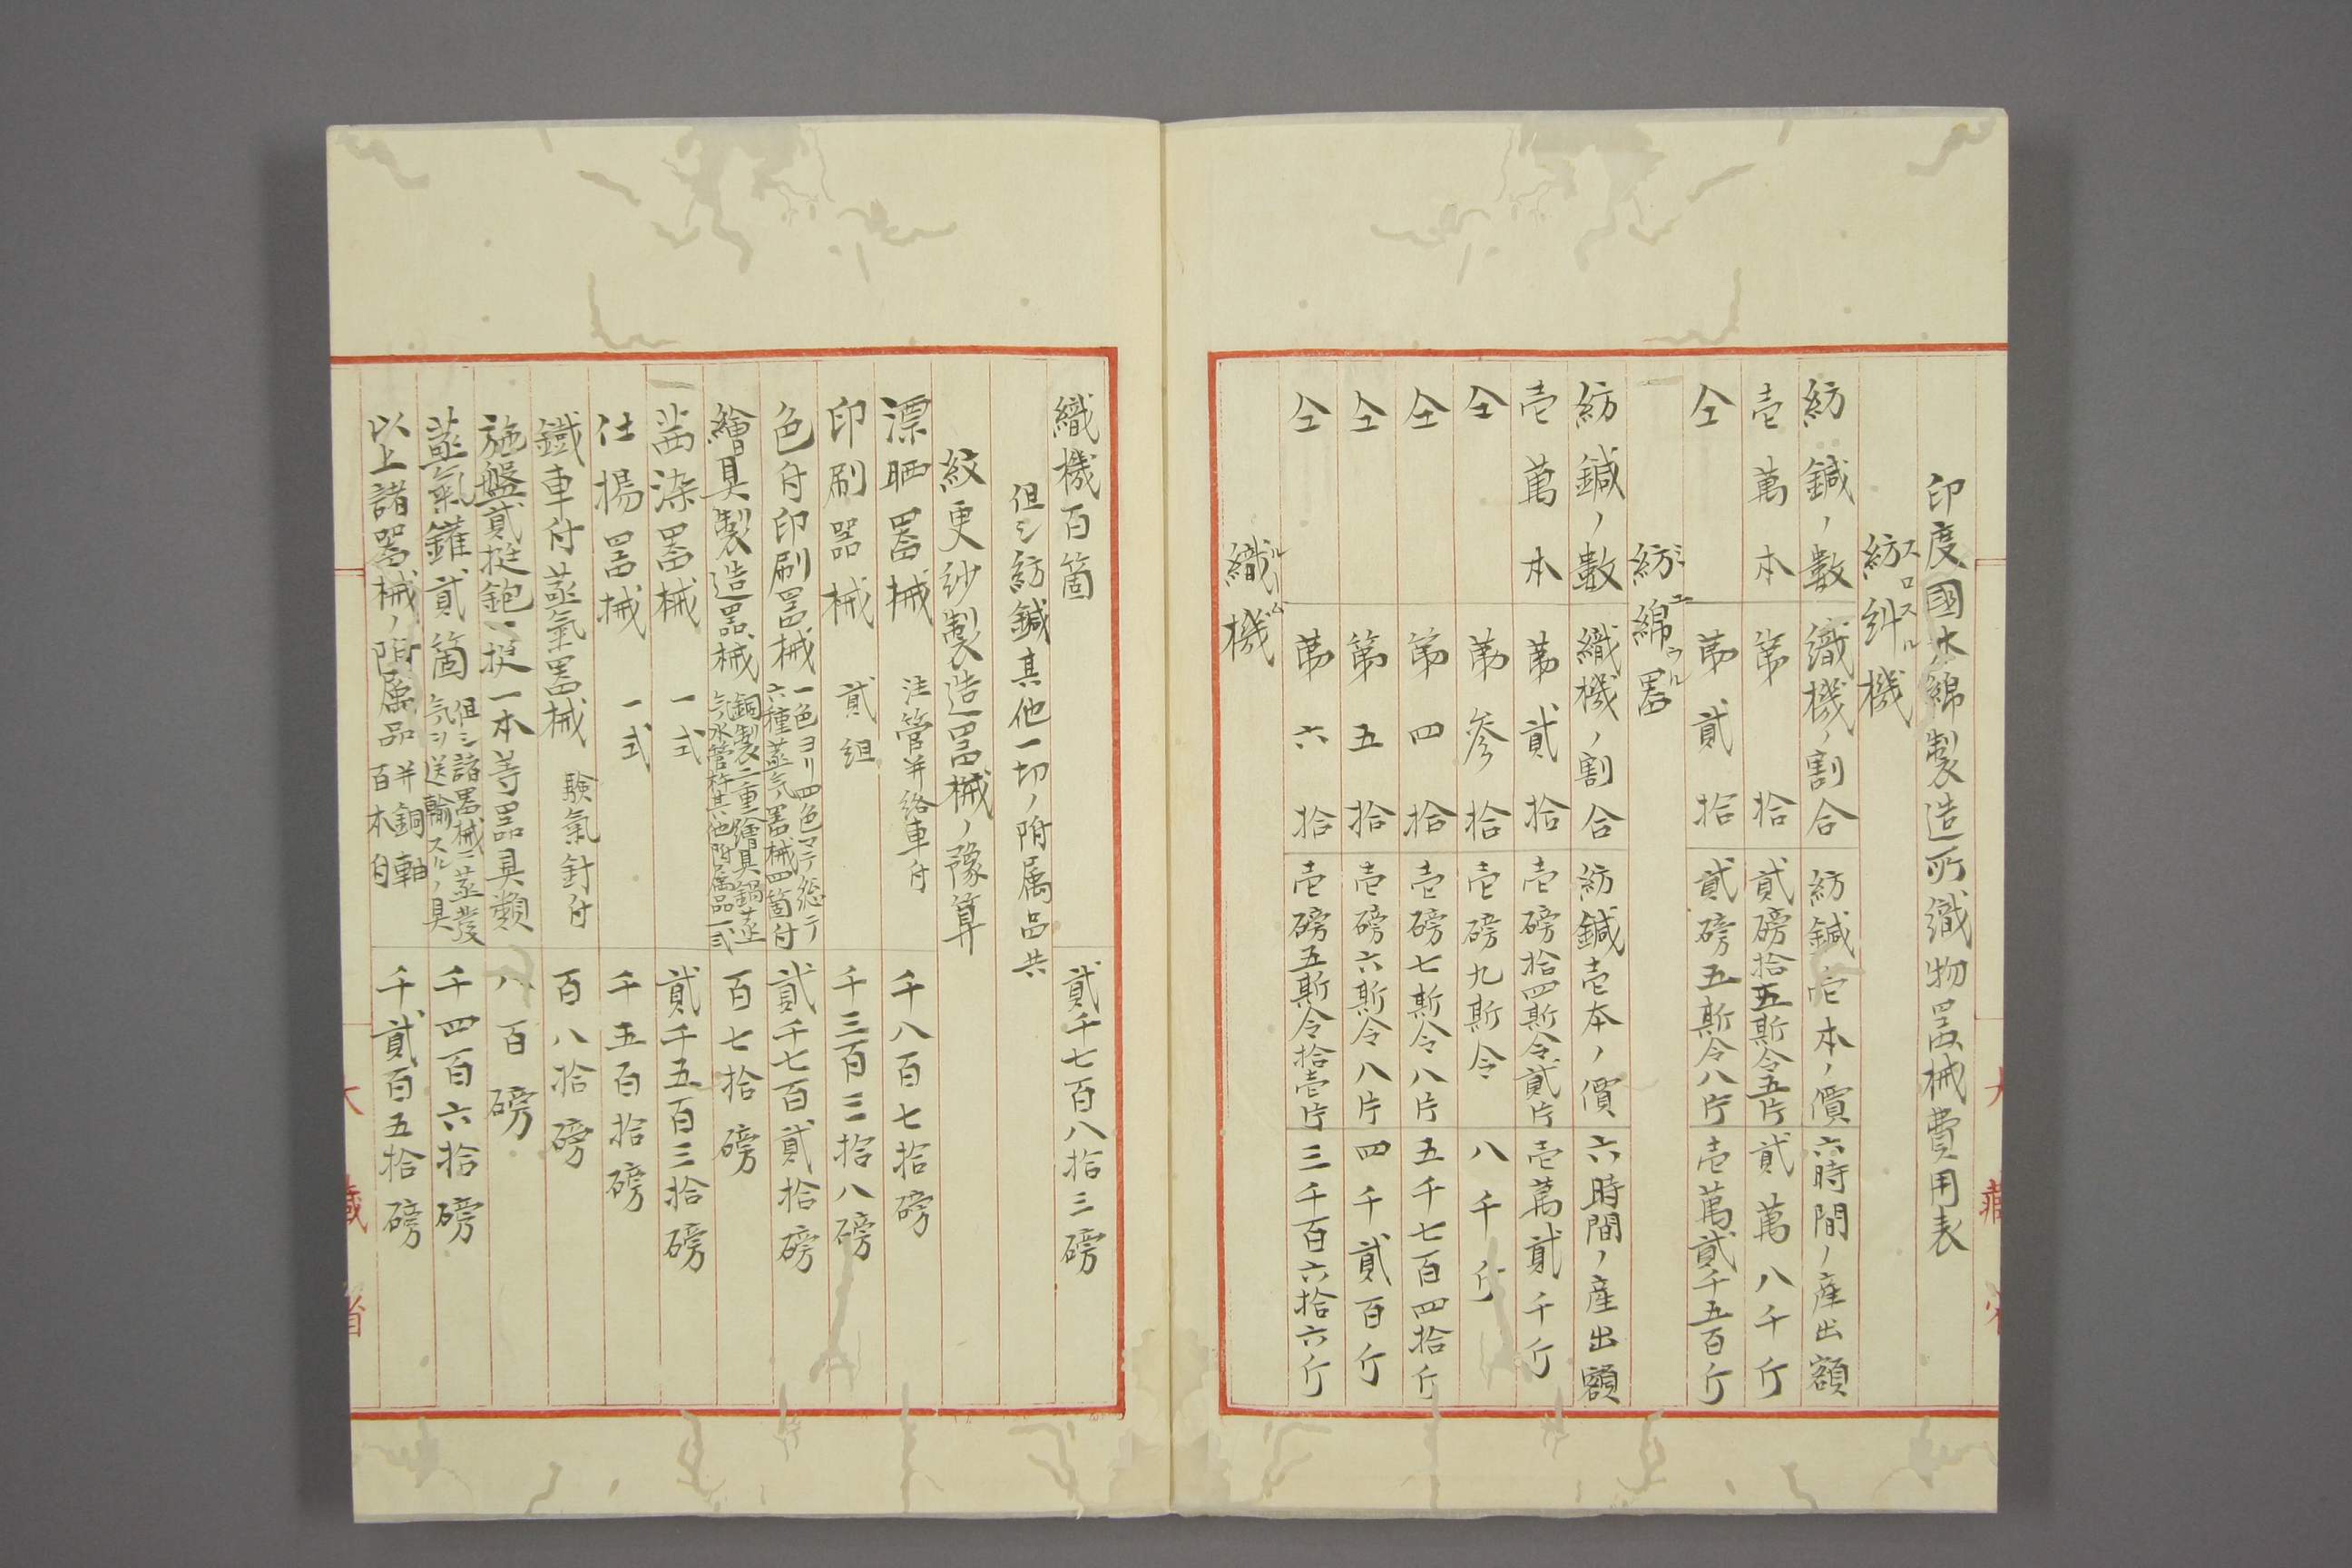 印度國木綿製造所織物噐械費用表
紡糾機
スロスル
紡鍼ノ數 織機ノ割合 紡鍼壱本ノ價 六時間ノ産出額
壱萬本 第拾 貳磅拾五斯令五片 貳萬八千斤
仝 第貳拾 貳磅五斯令八片 壱萬貳千五百斤
紡綿噐
ミユウル
紡鍼ノ數 織機ノ割合 紡鍼壱本ノ價 六時間ノ産出額
壱萬本 第貳拾 壱磅拾四斯令貳片 壱萬貳千斤
仝 第参拾 壱磅九斯令 八千斤
仝 第四拾 壱磅七斯令八片 五千七百四拾斤
仝 第五拾 壱磅六斯令八片 四千貳百斤
仝 第六拾 壱磅五斯令拾壱片 三千百六拾六斤
織機
ルーム
大藏省
織機百箇 貳千七百八拾三磅
但シ紡鍼其他一切ノ附属品共
紋更紗製造噐械ノ豫算
漂晒噐械 注管并絡車付 千八百七拾磅
印刷器械 貳組 千三百三拾八磅
色付印刷噐械 一色ヨリ四色マテ総テ六種蒸气ノ噐械四箇付 貳千七百貳拾磅
繪具製造器械 銅製二重繪具鍋蒸气水管杵其他附属品一式 百七拾磅
茜染噐械 一式 貳千五百三拾磅
仕揚噐械 一式 千五百拾磅
鐵車付蒸氣噐械 験氣針付 百八拾磅
施盤貳挺鉋一挺一本等器具類 八百磅
蒸氣鑵貳箇 但シ諸噐械ニ蒸發气ヲ送輸スルノ具 千四百六拾磅
以上諸噐械ノ附属品 并銅軸百本付 千貳百五拾磅
大藏省